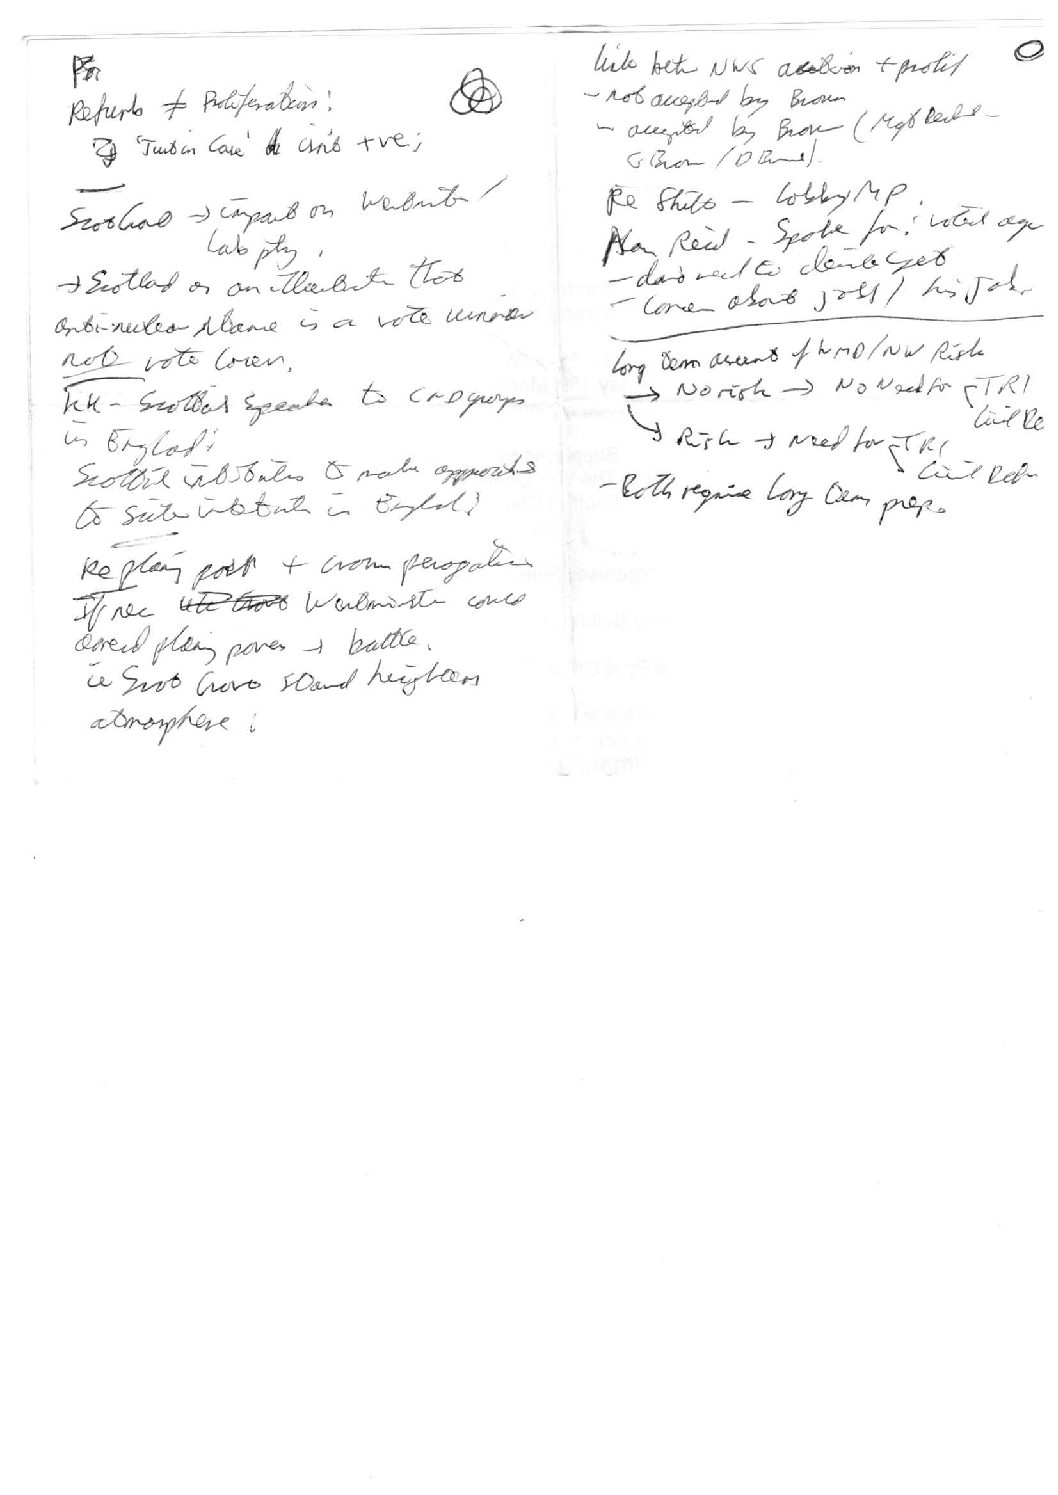 For
Refurb ≠ Proliferation!
'Just in Case' isn't +ve;
Scotland → impact on Westminster /
Lab pty.
→ Scotland as an illustration that
anti-nuclear stance is a vote winner
not vote loser.
KK - Scottish Speaker to CND groups
in England?
Scottish institutes to make approaches
to sister institutes in England?
Re plang post + crown perogative
If nec Westminster could
plang powers → battle.
ie Scot Govt stand heightens
atmosphere!
link betw NWS + prolif
- not accepted by Brown
- accepted by Brown (Mgt Beckett -
G Brown / D Browne).
Re Shifts - Lobby MP.
Alan Reid - Spoke for; voted aga
- don't need to decide yet
- Concern about jobs / his job.
Long Term assessment of WMD/NW Risk
→ No risk → No Need for TRI
Civil Re
→ Risk → Need for TRI
Civil Reg
- Both require Long Term prep.